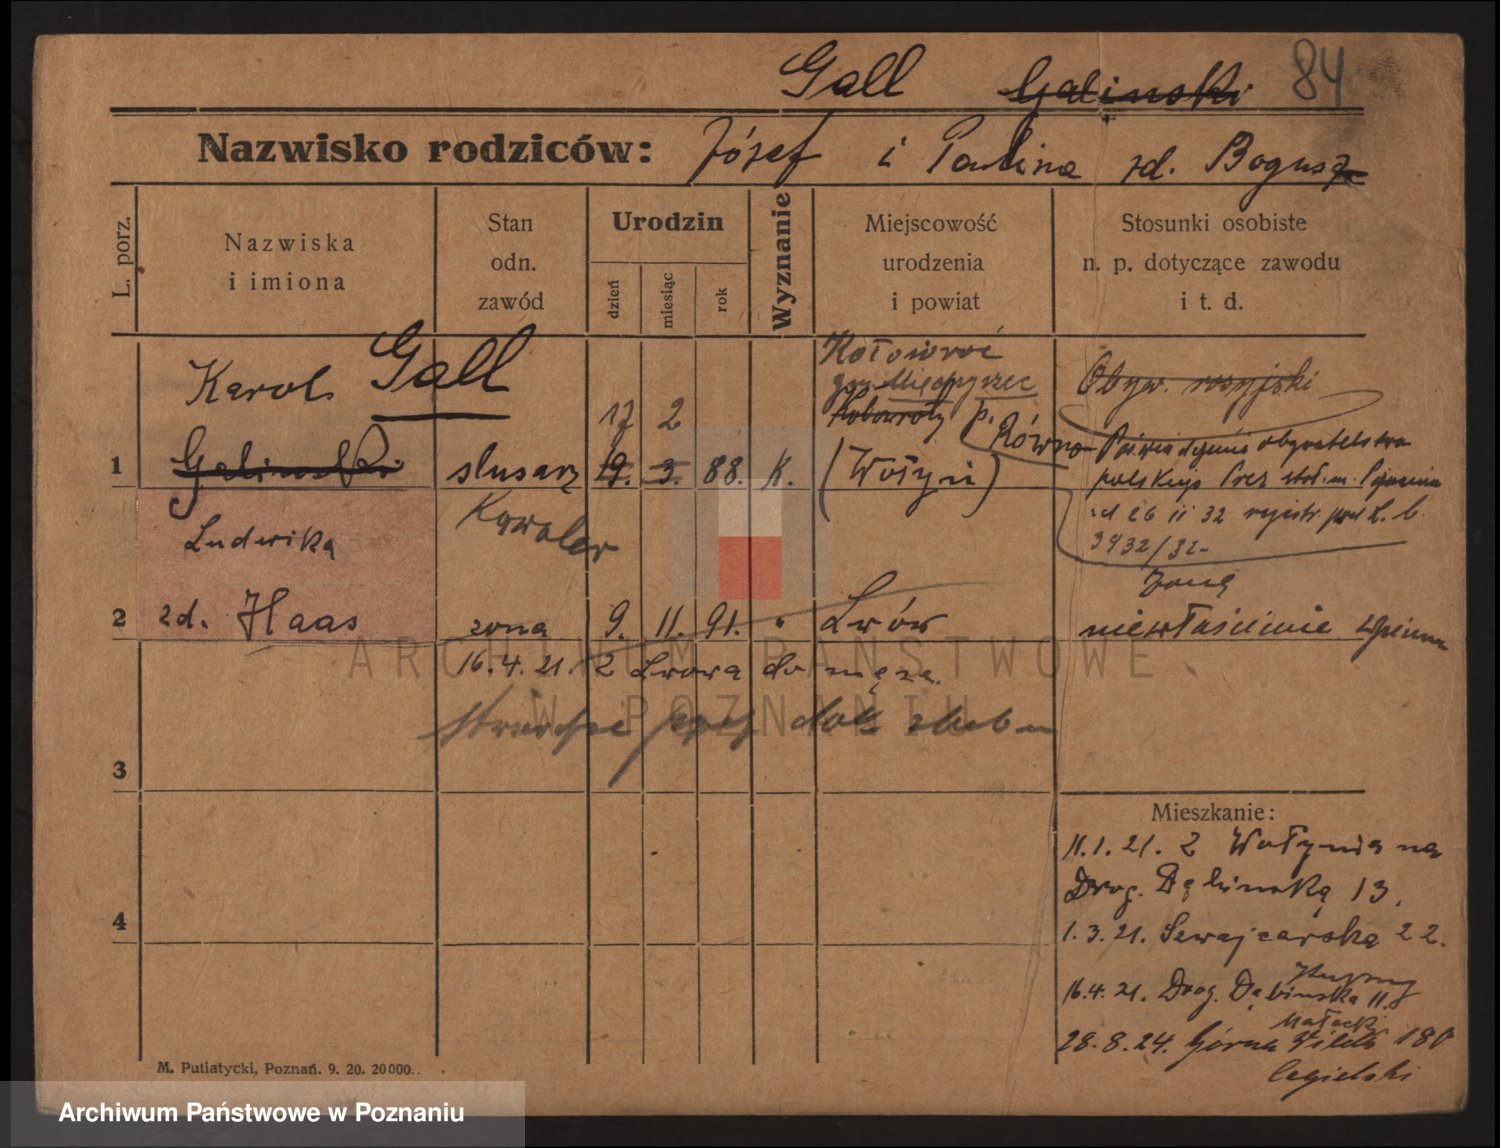 Gall Galinski 84
Nazwisko rodziców: Józef i Paulina zd. Bogusz
L. porz.
Nazwiska
i imiona
Stan
odn.
zawód
Urodzin
dzień
miesiąc
rok
Wyznanie
Miejscowość
urodzenia
i powiat
Stosunki osobiste
n. p. dotyczące zawodu
i t. d.
Karol Gall
Galinski
1
ślusarz
Kawaler
17 2
19. 3. 88. K.
Kołowroć
gm. Międzyrzec
p. Równo
(Wołyń)
Obyw. rosyjski
Poświadczenie obywatelstwa
polskiego Prez. stoł. m. Poznania
26 II 32 rejestr. pod L. b.
3932/32
Ludwika
2 zd. Haas
żona 9. 11. 91. " Lwów
żoną
niewłaściwie
16.4.21. z Lwowa do męża.
3
4
Mieszkanie:
11.1.21. z Wołynia na
Drog. Dębinską 13.
1.3.21. Szwajcarska 22.
16.4.21. Drog. Dębinska 11.
Małecki
28.8.24. Górna Wilda 180
Cegielski
M. Putiatycki, Poznań. 9. 20. 20000..
ARCHIWUM PAŃSTWOWE
W POZNANIU
Archiwum Państwowe w Poznaniu